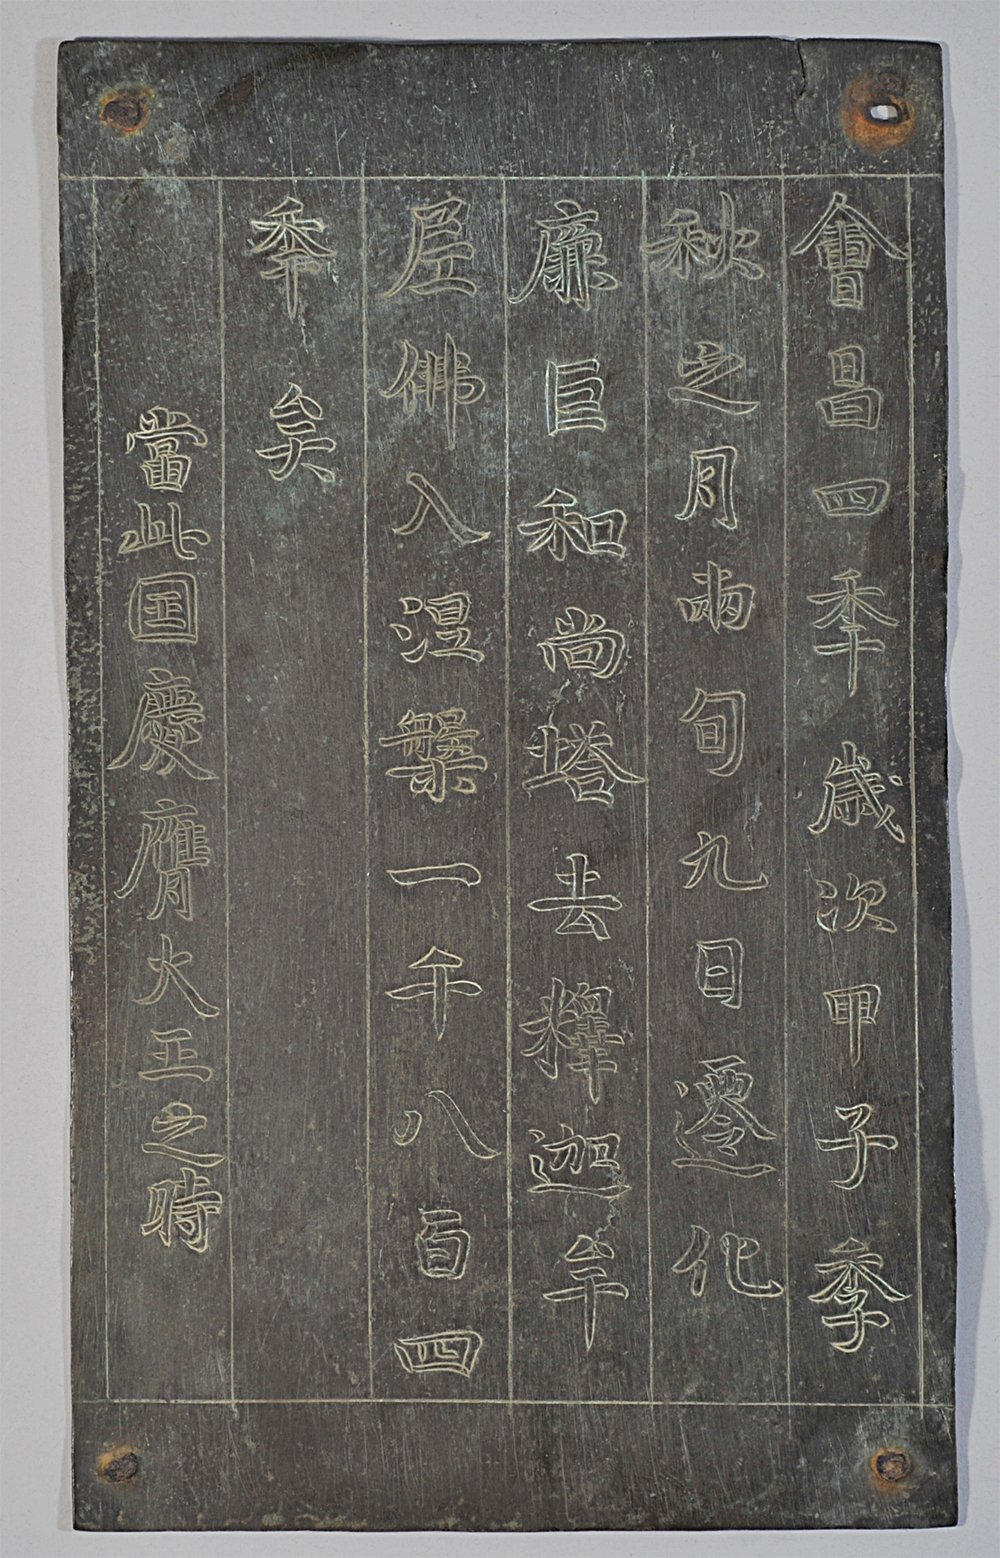 會昌四秊歲次甲子季
秋之月兩旬九日遷化
廉巨和尚塔去釋迦牟
尼佛入涅槃一千八百四
秊矣
當此囯慶膺大王之時